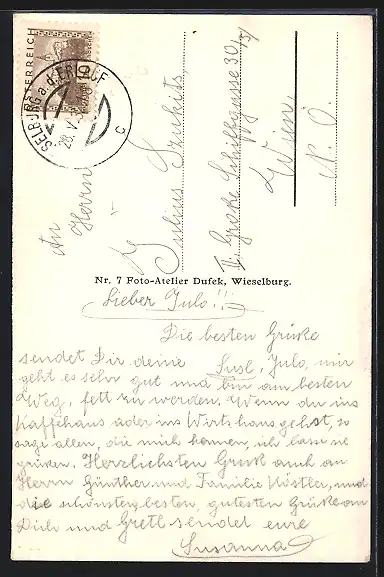 ÖSTERREICH
SELBURG a.d. ERLAUF
28.V.
c
An
Herrn
Julius
II. Große Schiffgasse 30/
Wien
N.Ö.
Nr. 7 Foto-Atelier Dufek, Wieselburg.
Lieber Julo!!
Die besten Grüße
sendet Dir deine Susl, Julo, mir
geht es sehr gut und bin am besten
Weg, fett zu werden. Wenn du ins
Kaffehaus oder ins Wirtshaus gehst, so
sage allen, die mich kennen, ich lasse sie
grüßen. Herzlichsten Gruß auch an
Herrn Günther und Familie Köstler, und
die schönsten, besten, gutesten Grüße an
Dich und Gretl sendet eure
Susanna